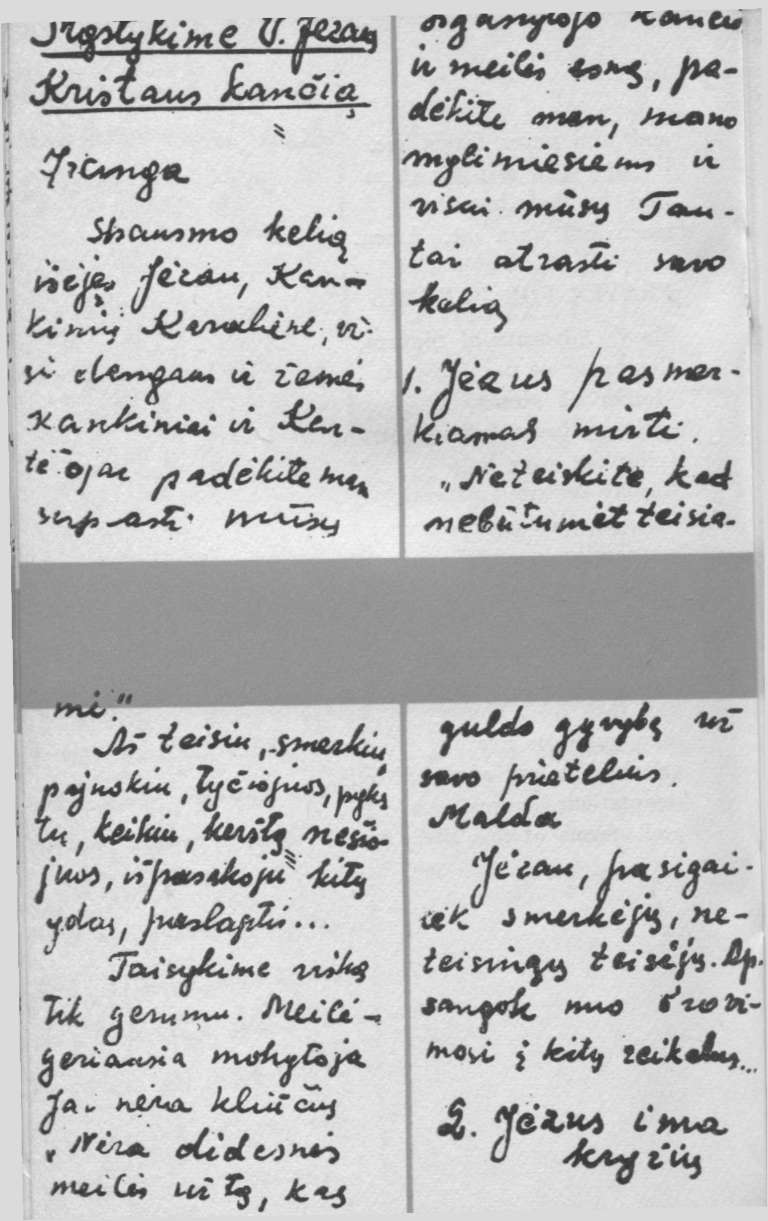 Apstykime V. Jėzaus
Kristaus kančią
Įžanga
Skausmo kelią
išėjęs Jėzau, Kan-
kinių Karaliene, vi-
si dangaus ir žemės
kankiniai ir Ken-
tėtojai padėkite man
suprasti mūsų
kančios
ir meilės esmę, pa-
dėkite man, mano
mylimiesiems ir
visai mūsų Tau-
tai atrasti savo
kelią
1. Jėzus pasmer-
kiamas mirti.
„Neteiskite, kad
nebūtumėt teisia-
mi."
Aš teisiu, smerkiu,
pajuokiu, tyčiojuos, pyks
tu, keikiu, kerštą nešio-
juos, išpasakoju kitų
ydas, paslaptis...
Taisykime viską
tik gerumu. Meilė -
geriausia mokytoja
Jai nėra kliūčių
„Nėra didesnės
meilės už tą, kas
guldo gyvybę už
savo prietelius.
Malda
Jėzau, pasigai-
lėk smerkėjų, ne-
teisingų teisėjų. Ap-
saugok nuo brovi-
mosi į kitų reikalus...
2. Jėzus ima
kryžių